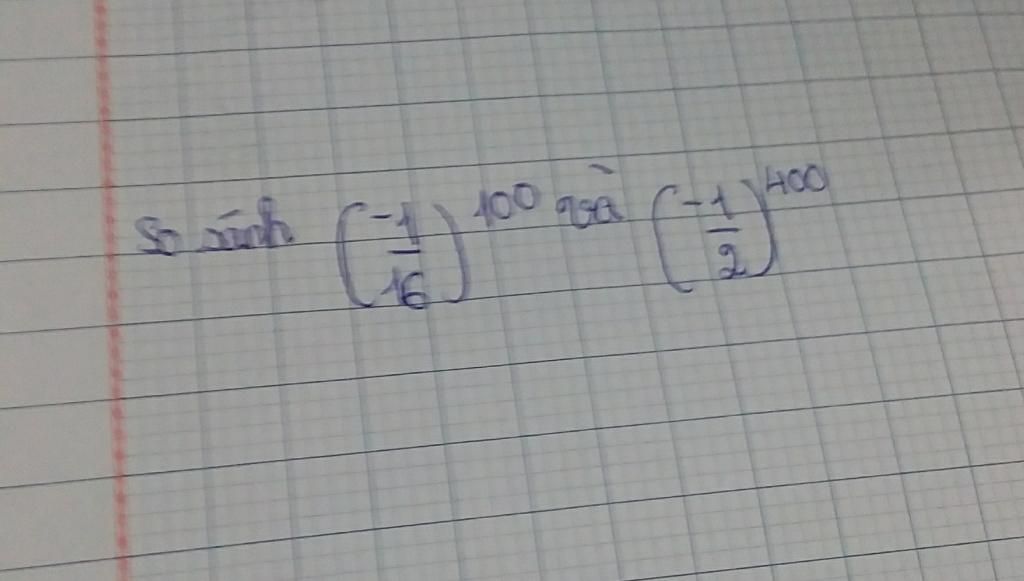 So sánh (-1/16)^100 và (-1/2)^400